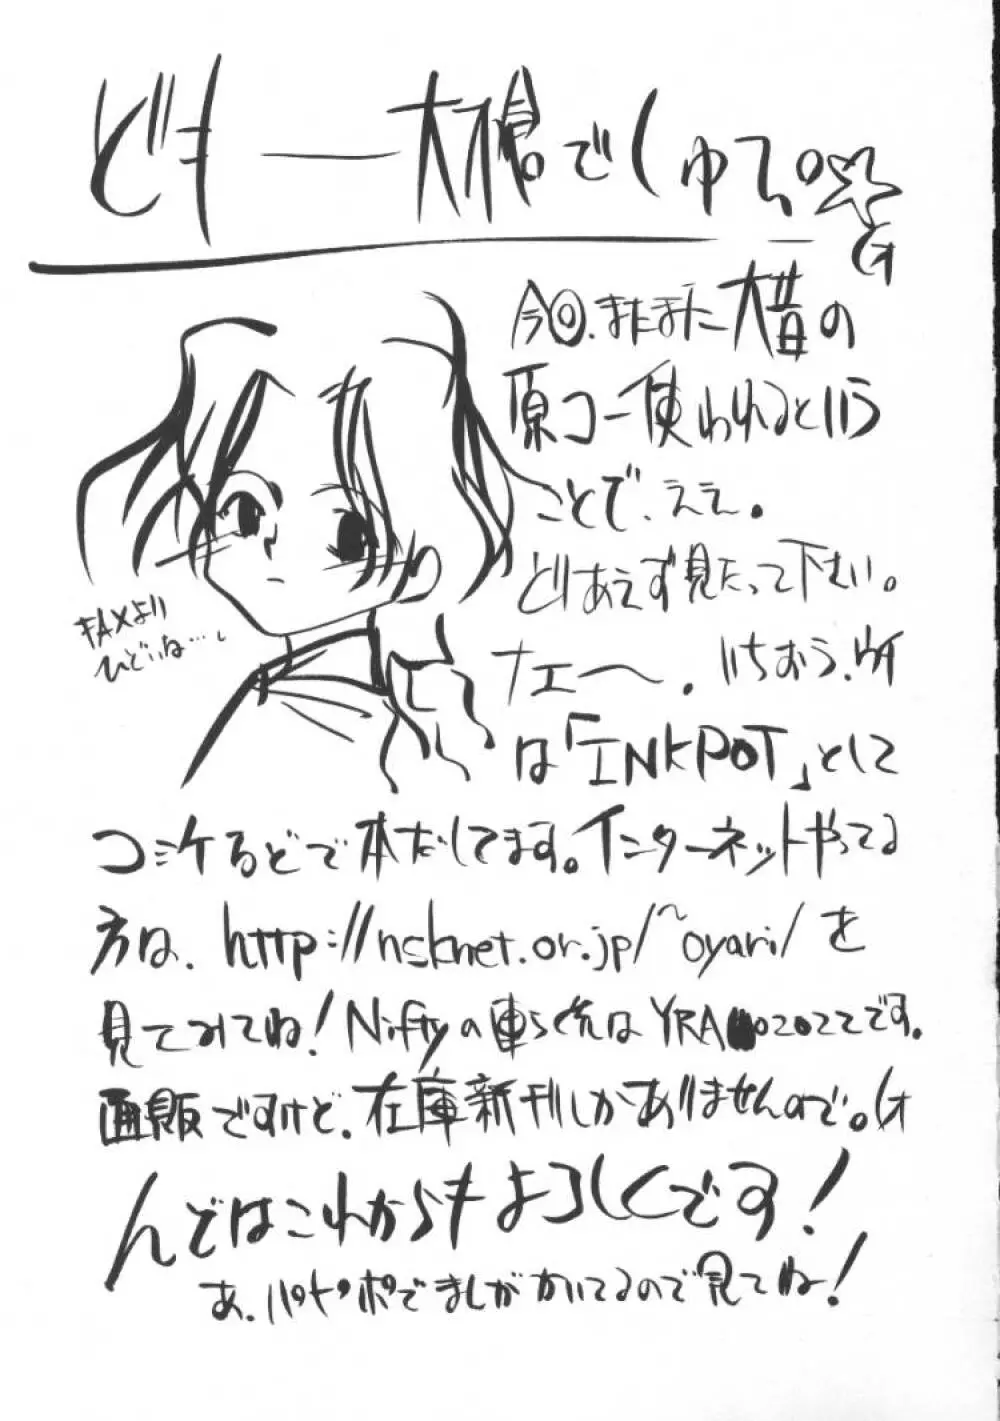 どもー大槍でしゅう。☆
今回、またまた大昔の
原コー使われるという
ことで、ええ。
とりあえず見たって下せい。
FAXより
ひどいね…
ナエ〜。いちおう、
は「INKPOT」として
コミケなどで本だしてます。インターネットやってる
方は、http://nsknet.or.jp/~oyari/を
見てみてね!Niftyの連らく先はYRA02022です。
通販ですけど、在庫新刊しかありませんので。
んではこれからもよろしくです!
あ、パトポでまんがかいてるので見てね!